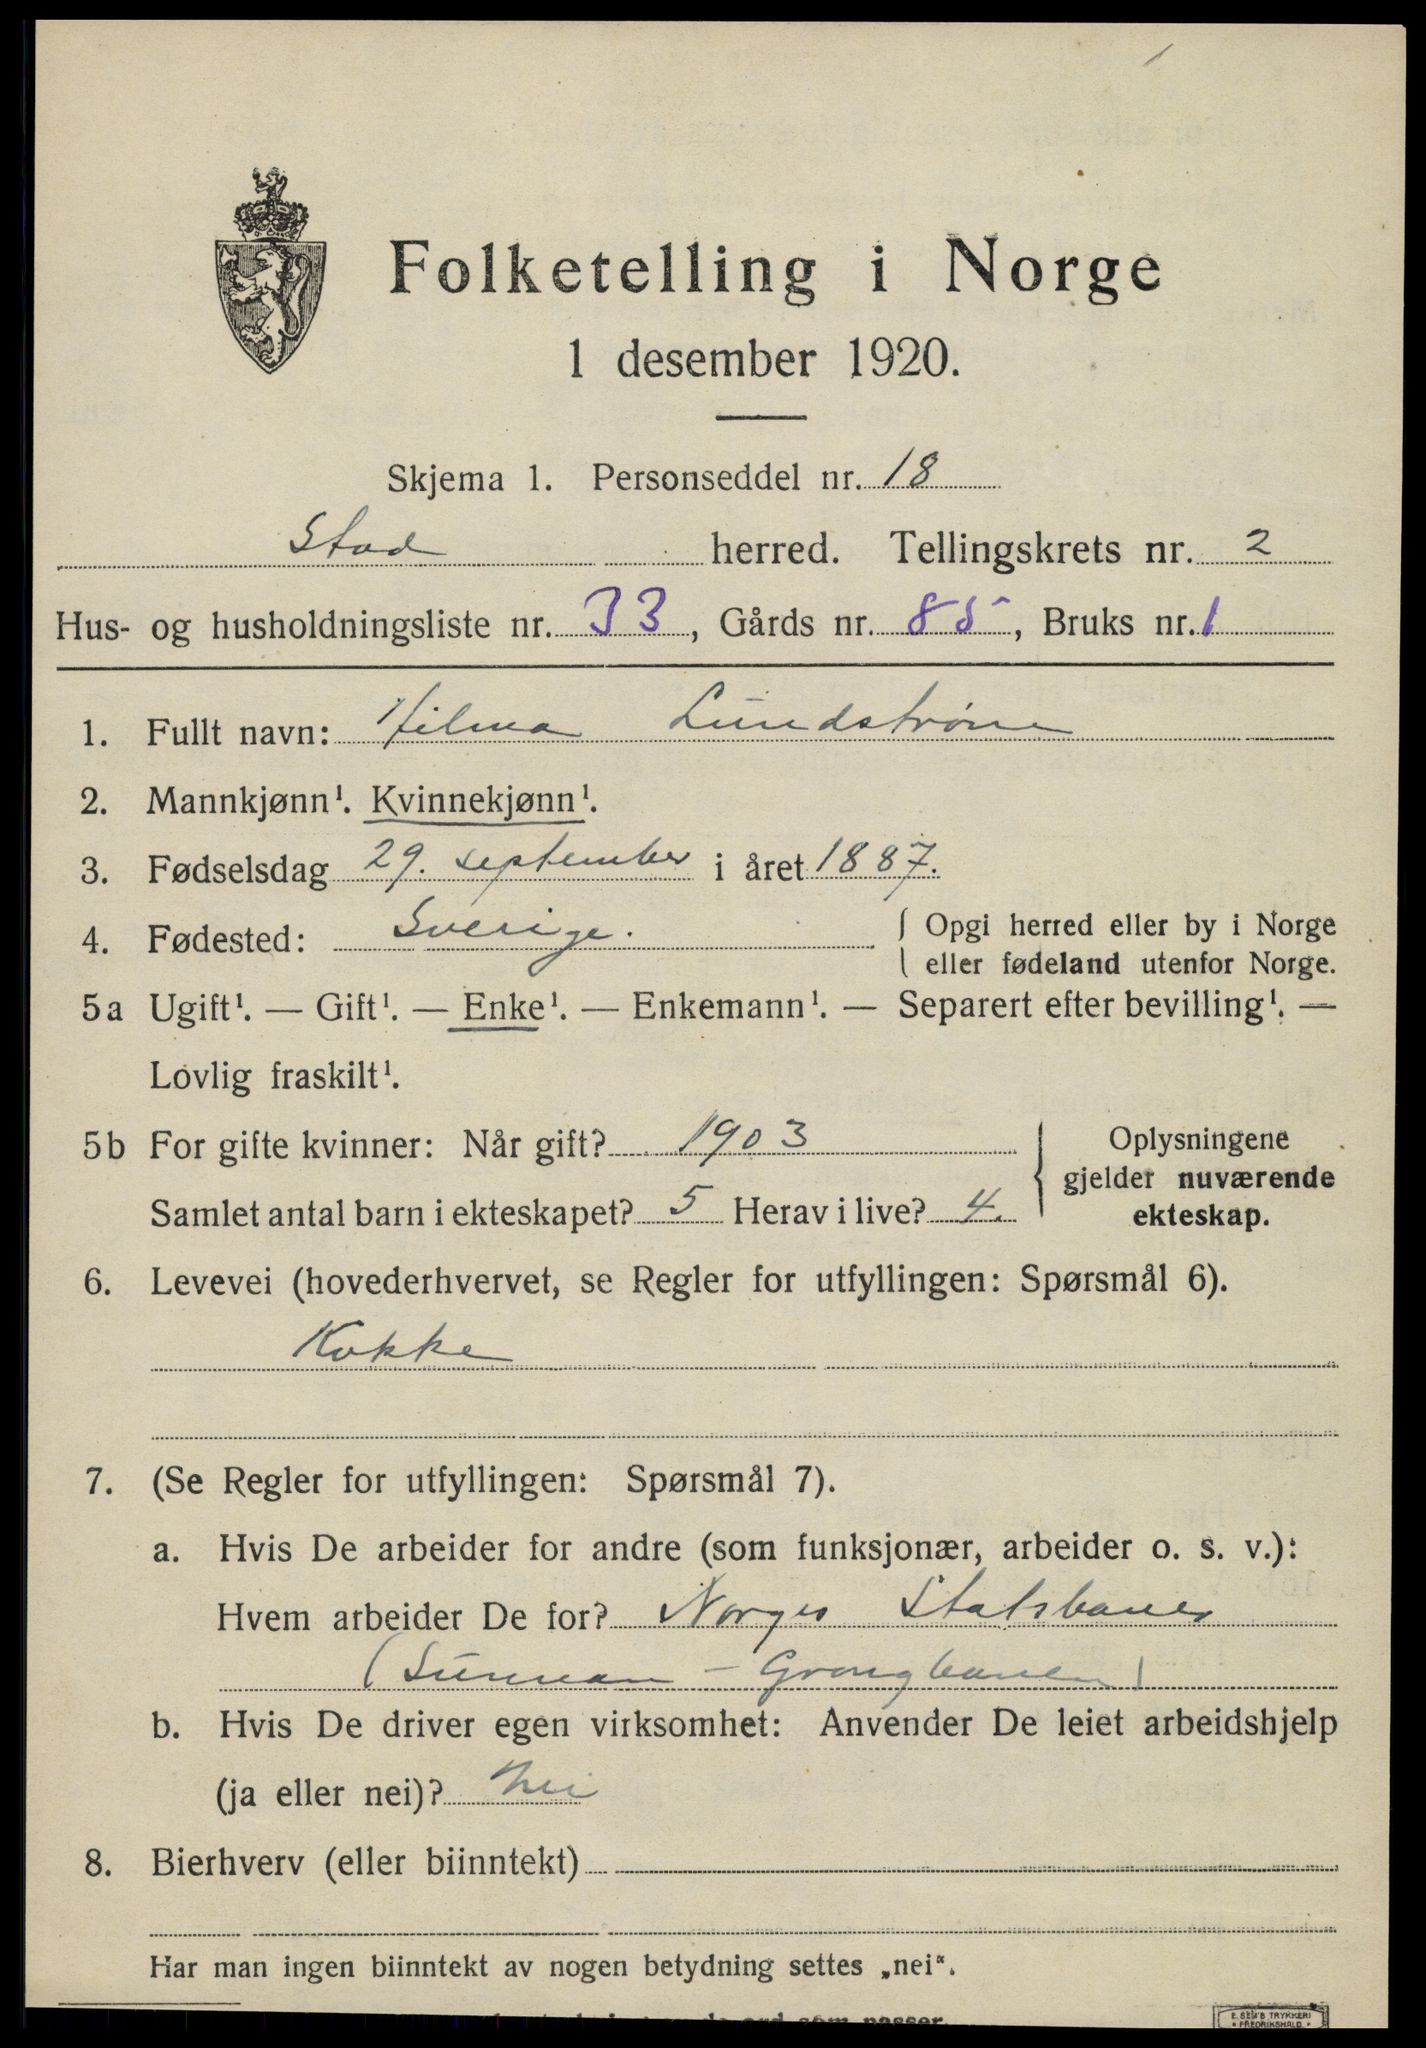 Folketelling i Norge
1 desember 1920.
Skjema 1. Personseddel nr. 18
Stod herred. Tellingskrets nr. 2
Hus- og husholdningsliste nr. 33, Gårds nr. 85, Bruks nr. 1
1. Fullt navn: Hilma Lundstrøm
2. Mannkjønn¹. Kvinnekjønn¹.
3. Fødselsdag 29. september i året 1887.
4. Fødested: Sverige. { Opgi herred eller by i Norge
eller fødeland utenfor Norge.
5a Ugift¹. — Gift¹. — Enke¹. — Enkemann¹. — Separert efter bevilling¹. —
Lovlig fraskilt¹.
5b For gifte kvinner: Når gift? 1903
Samlet antal barn i ekteskapet? 5 Herav i live? 4.
Oplysningene
gjelder nuværende
ekteskap.
6. Levevei (hovederhvervet, se Regler for utfyllingen: Spørsmål 6).
Kokke
7. (Se Regler for utfyllingen: Spørsmål 7).
a. Hvis De arbeider for andre (som funksjonær, arbeider o. s. v.):
Hvem arbeider De for? Norges Statsbaner
(Sunnan - Grongbanen)
b. Hvis De driver egen virksomhet: Anvender De leiet arbeidshjelp
(ja eller nei)? Nei
8. Bierhverv (eller biinntekt) —
Har man ingen biinntekt av nogen betydning settes „nei".
som passer.
E. SEM'S TRYKKERI
FREDRIKSHALD